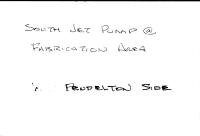 SOUTH JET PUMP @
FABRICATION AREA
% PENDELTON SIDE